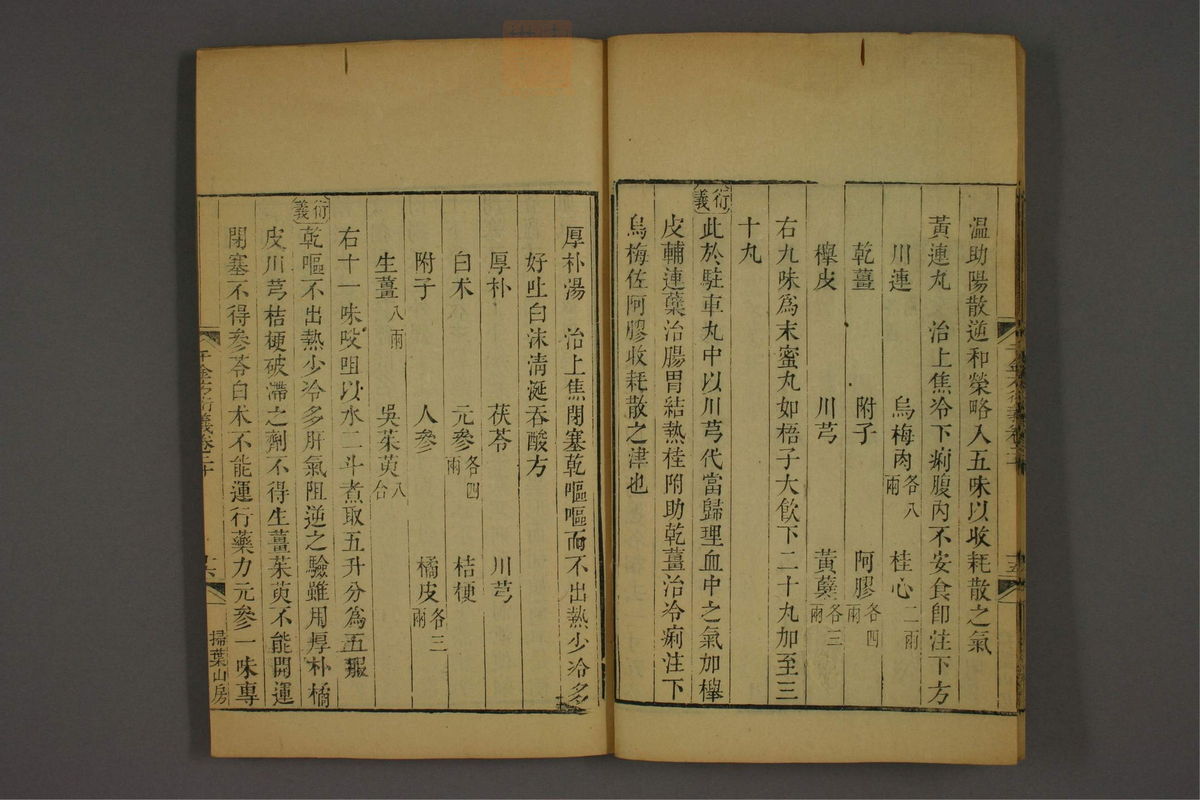 溫助陽散逆和榮略入五味以收耗散之氣
黃連丸　治上焦冷下痢腹內不安食卽注下方
川連　烏梅肉各八兩　桂心二兩
乾薑　附子　阿膠各四兩
櫸皮　川芎　黃蘗各三兩
右九味爲末蜜丸如梧子大飮下二十丸加至三
十丸
衍義
此於駐車丸中以川芎代當歸理血中之氣加櫸
皮輔連蘗治腸胃結熱桂附助乾薑治冷痢注下
烏梅佐阿膠收耗散之津也
千金方衍義卷二十
十五
厚朴湯　治上焦閉塞乾嘔嘔而不出熱少冷多
好吐白沫淸涎吞酸方
厚朴　茯苓　川芎
白朮　元參各四兩　桔梗
附子　人參　橘皮各三兩
生薑八兩　吳茱萸八合
右十一味㕮咀以水二斗煮取五升分爲五服
衍義
乾嘔不出熱少冷多肝氣阻逆之驗雖用厚朴橘
皮川芎桔梗破滯之劑不得生薑茱萸不能開運
閉塞不得參苓白朮不能運行藥力元參一味專
千金方衍義卷二十
十六
掃葉山房